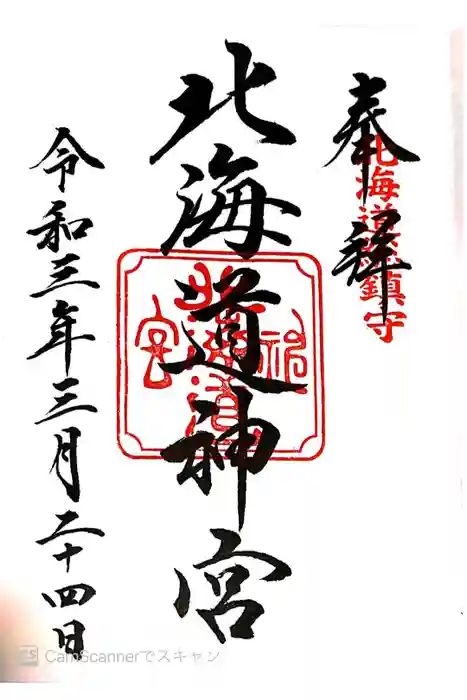 奉拝
北海道総鎮守
北海道神宮
令和三年三月二十四日
CamScannerでスキャン